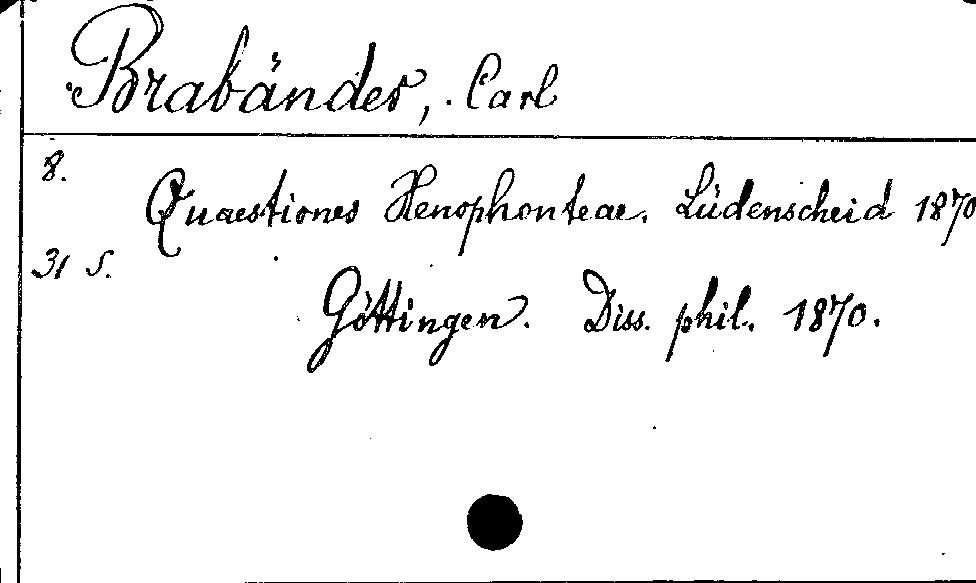 Brabänder, Carl
8.
Quaestiones Xenophonteae. Lüdenscheid 1870
31 S.
Göttingen. Diss. phil. 1870.